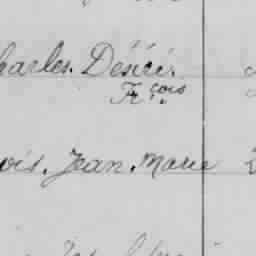 harles. Désiré.
Fr.çois
ois. Jean. Marie